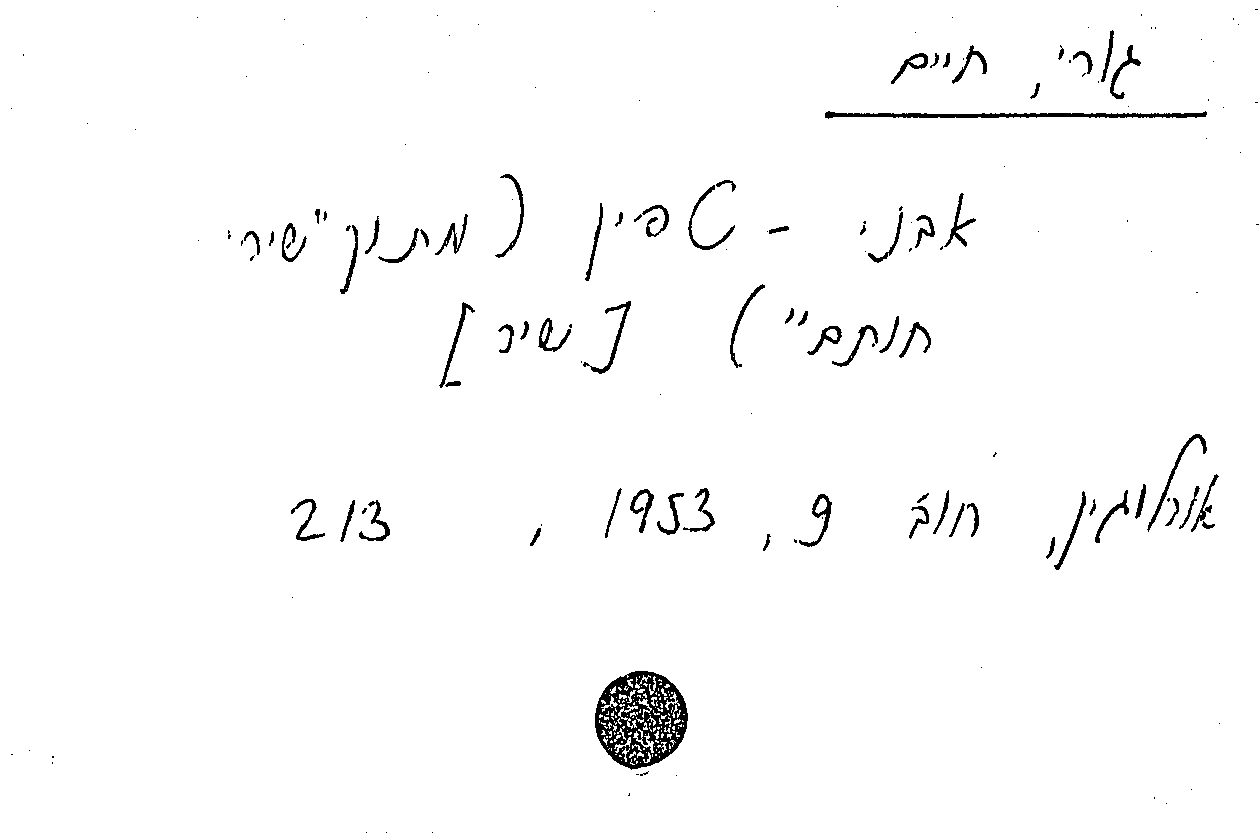 גורי, חיים
אבני - טפין (מתוך "שירי
חותם") [שיר]
אורלוגין, חוב' 9, 1953, 213